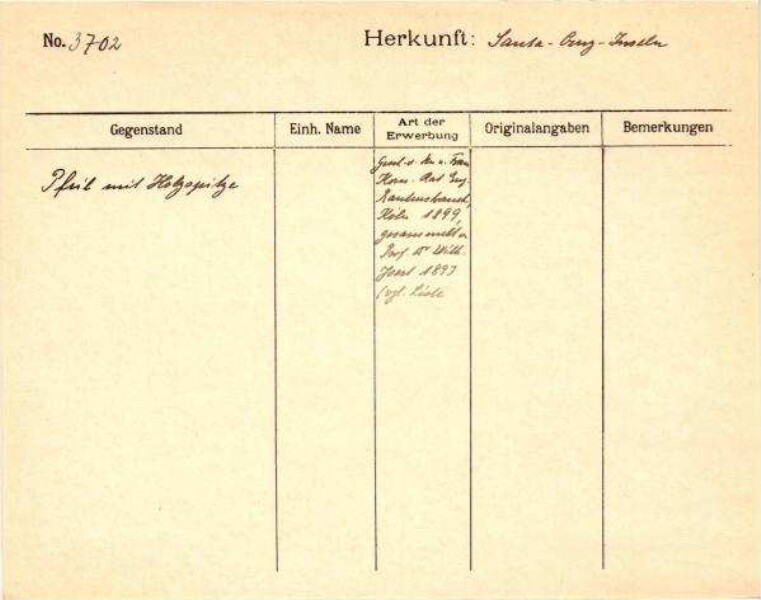 No. 3702 Herkunft: Santa-Cruz-Inseln
Gegenstand Einh. Name Art der Erwerbung Originalangaben Bemerkungen
Pfeil mit Holzspitze
Gesch. v. Hrn u. Frau
Kom. Rat Eug.
Rautenstrauch,
Köln 1899,
gesammelt v.
Prof Dr Wilh.
Joest 1897
(vgl. Liste